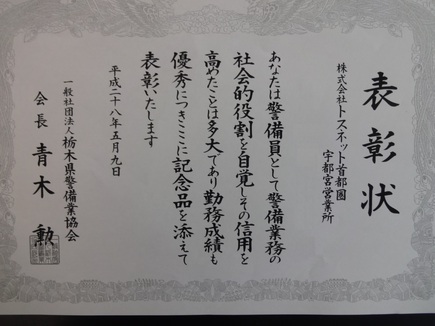 表彰状
株式会社トスネット首都圏
宇都宮営業所
あなたは警備員として警備業務の
社会的役割を自覚しその信用を
高めたことは多大であり勤務成績も
優秀につきここに記念品を添えて
表彰いたします
平成二十八年五月九日
一般社団法人栃木県警備業協会
会長 青木 勲